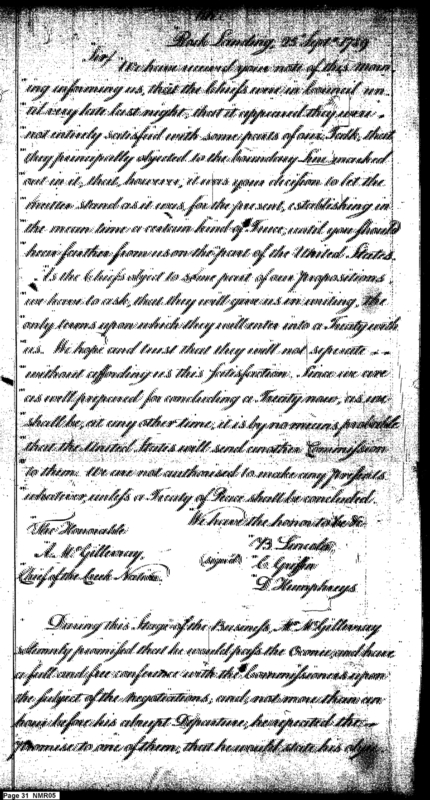 Rock Landing, 25 Sept. 1789
Sir/
"We have received your note of this morn
"ing informing us, that the Chiefs were in Council un
"til very late last night, that it appeared they were
"not intirely satisfied with some parts of our Talk, that
"they principally objected to the boundary Line marked
"out in it, that, however, it was your decision to let the
"matter stand as it was, for the present, establishing in
"the mean time a certain kind of Truce, until you should
"hear farther from us on the part of the United States.
"As the Chiefs object to some part of our propositions,
"we have to ask, that they will give us in writing, the
"only terms upon which they will enter into a Treaty with
"us. We hope and trust that they will not seperate --
"without affording us this satisfaction. Since we are
"as well prepared for concluding a Treaty now, as we
"shall be, at any other time, it is by no means probable
"that the United States will send another Commission
"to them. We are not authorised to make any presents
"whatever, unless a Treaty of Peace shall be concluded.
"We have the honor to be &c
"The Honorable
"A. McGillivray,
"Chief of the Creek Nation
(signed)
"B. Lincoln
"C. Griffin
"D. Humphreys
During this Stage of the Business, Mr. McGillivray
solemnly promised that he would pass the Oconee and have
a full and free conference with the Commissioners upon
the subject of the Negotiations; and, not more than an
hour before his abrupt Departure, he repeated the
promise to one of them, that he would state his objec
Page 31 NMR05